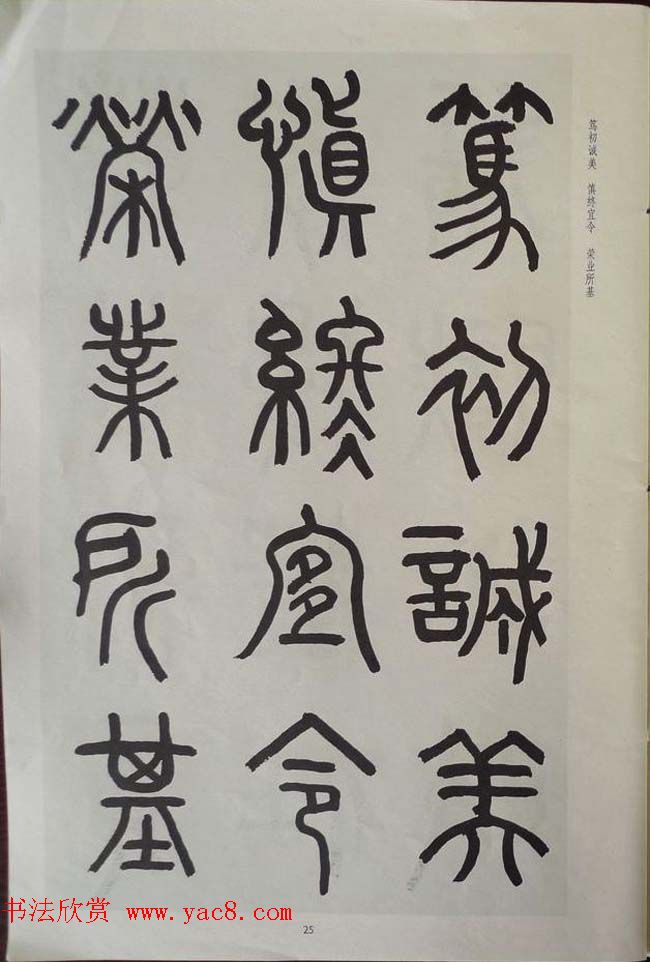 篤初誠美
慎終宜令
榮業所基
笃初诚美 慎终宜令 荣业所基
书法欣赏 www.yac8.com
25